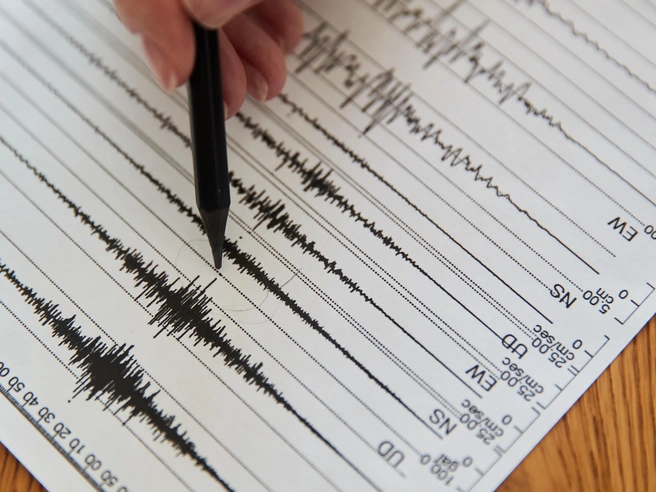 EW
NS
UD
EW
NS
UD
0
5.00
cm
0
25.00
cm/sec
0
25.00
cm/sec
0
25.00
cm/sec
0
100.0
gal
10 20 30 40 50 00
10 20 30 40 50 00